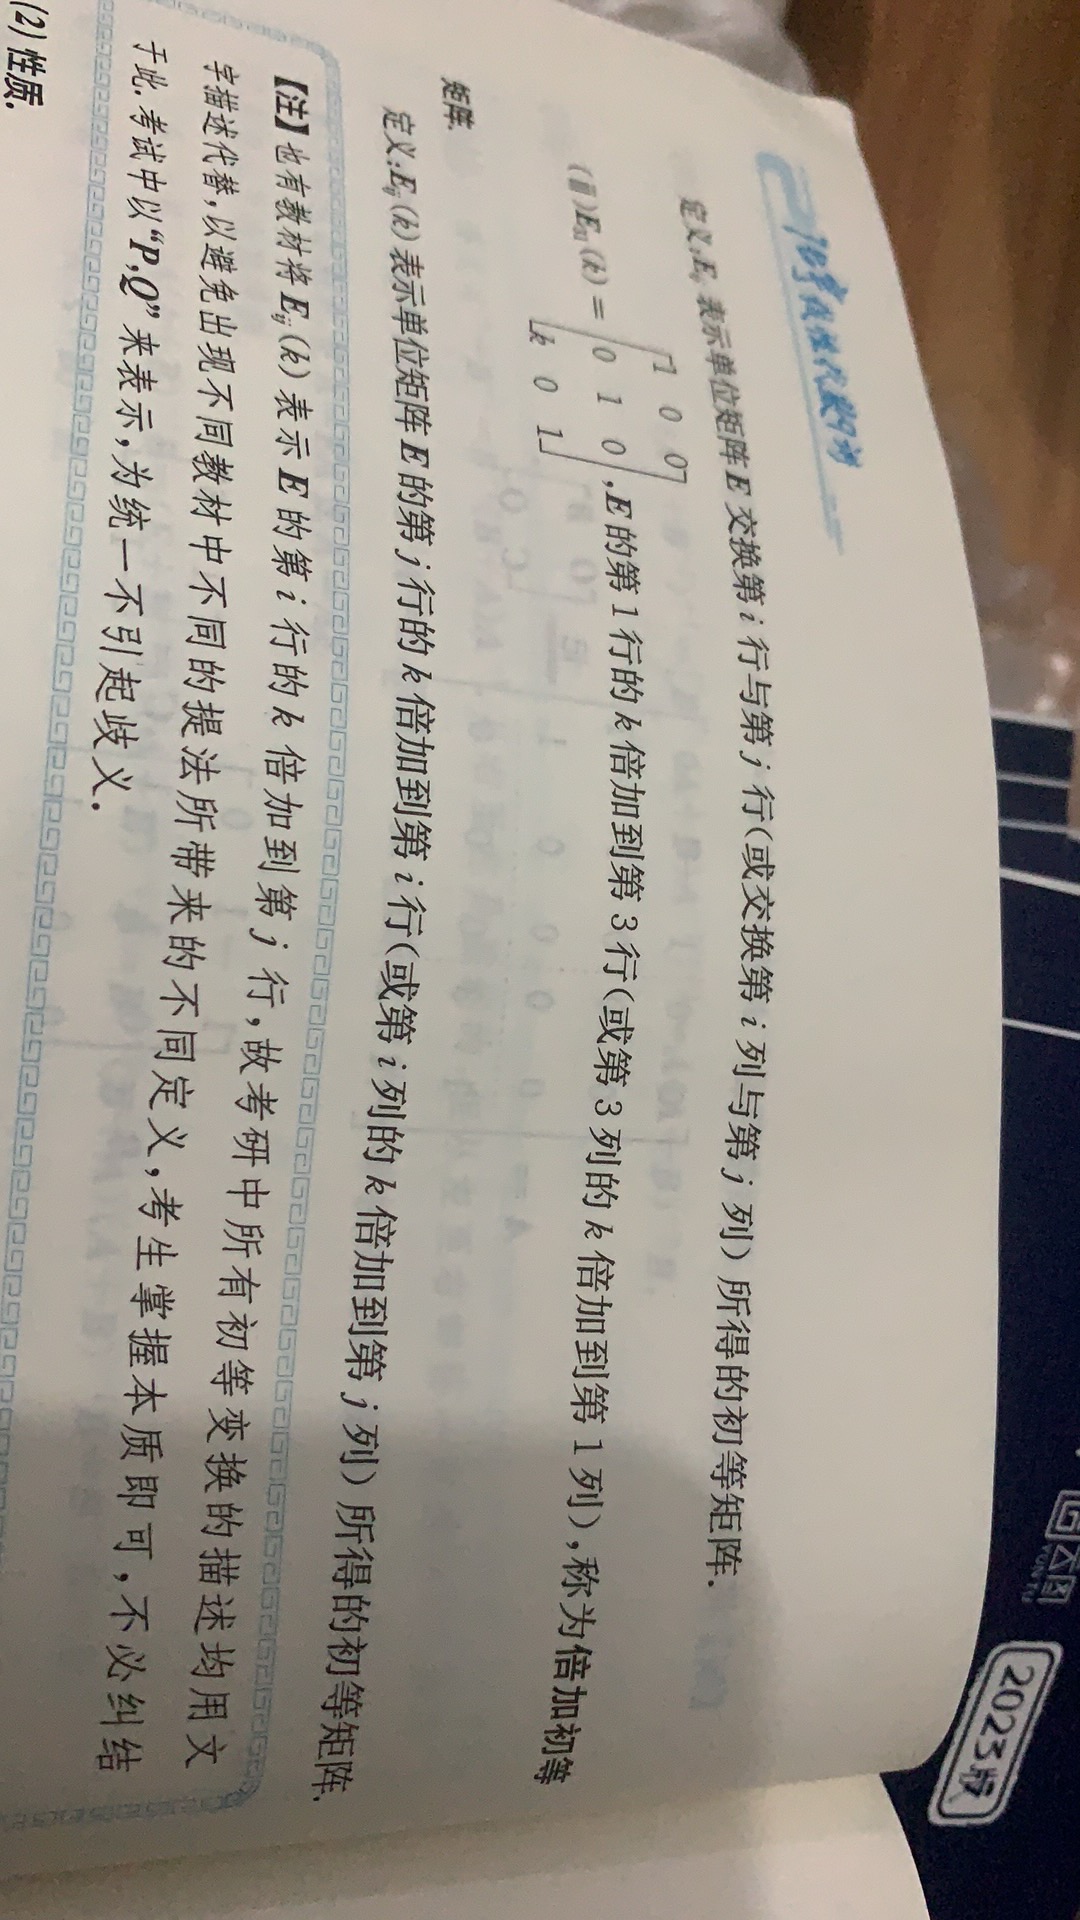 定义:Eij 表示单位矩阵 E 交换第 i 行与第 j 行(或交换第 i 列与第 j 列)所得的初等矩阵.
(ⅲ)E31(k) = [1 0 0
0 1 0
k 0 1], E 的第 1 行的 k 倍加到第 3 行(或第 3 列的 k 倍加到第 1 列),称为倍加初等
矩阵.
定义:Eij(k)表示单位矩阵 E 的第 j 行的 k 倍加到第 i 行(或第 i 列的 k 倍加到第 j 列)所得的初等矩阵.
【注】也有教材将 Eij(k)表示 E 的第 i 行的 k 倍加到第 j 行,故考研中所有初等变换的描述均用文
字描述代替,以避免出现不同教材中不同的提法所带来的不同定义,考生掌握本质即可,不必纠结
于此.考试中以“P,Q”来表示,为统一不引起歧义.
(2)性质.
2023版
云图
YUNTU